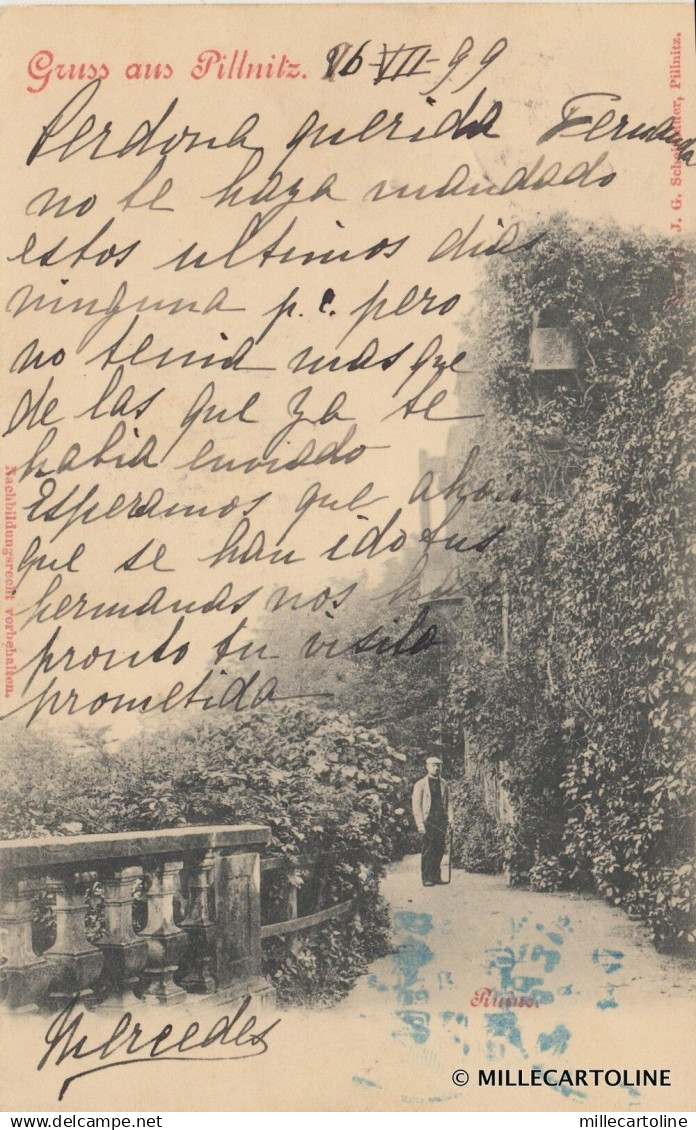 Gruss aus Pillnitz. 16-VII-99
Perdona querida Fernanda
no te haya mandado
estos ultimos dias
ninguna p.c. pero
no tenia mas que
de las que ya te
habia enviado
Esperamos que ahora
que se han ido tus
hermanas nos haras
pronto tu visita
prometida
Mercedes
Ruine.
J. G. Pillnitz.
Nachbildungsrecht vorbehalten.
© MILLECARTOLINE
millecartoline